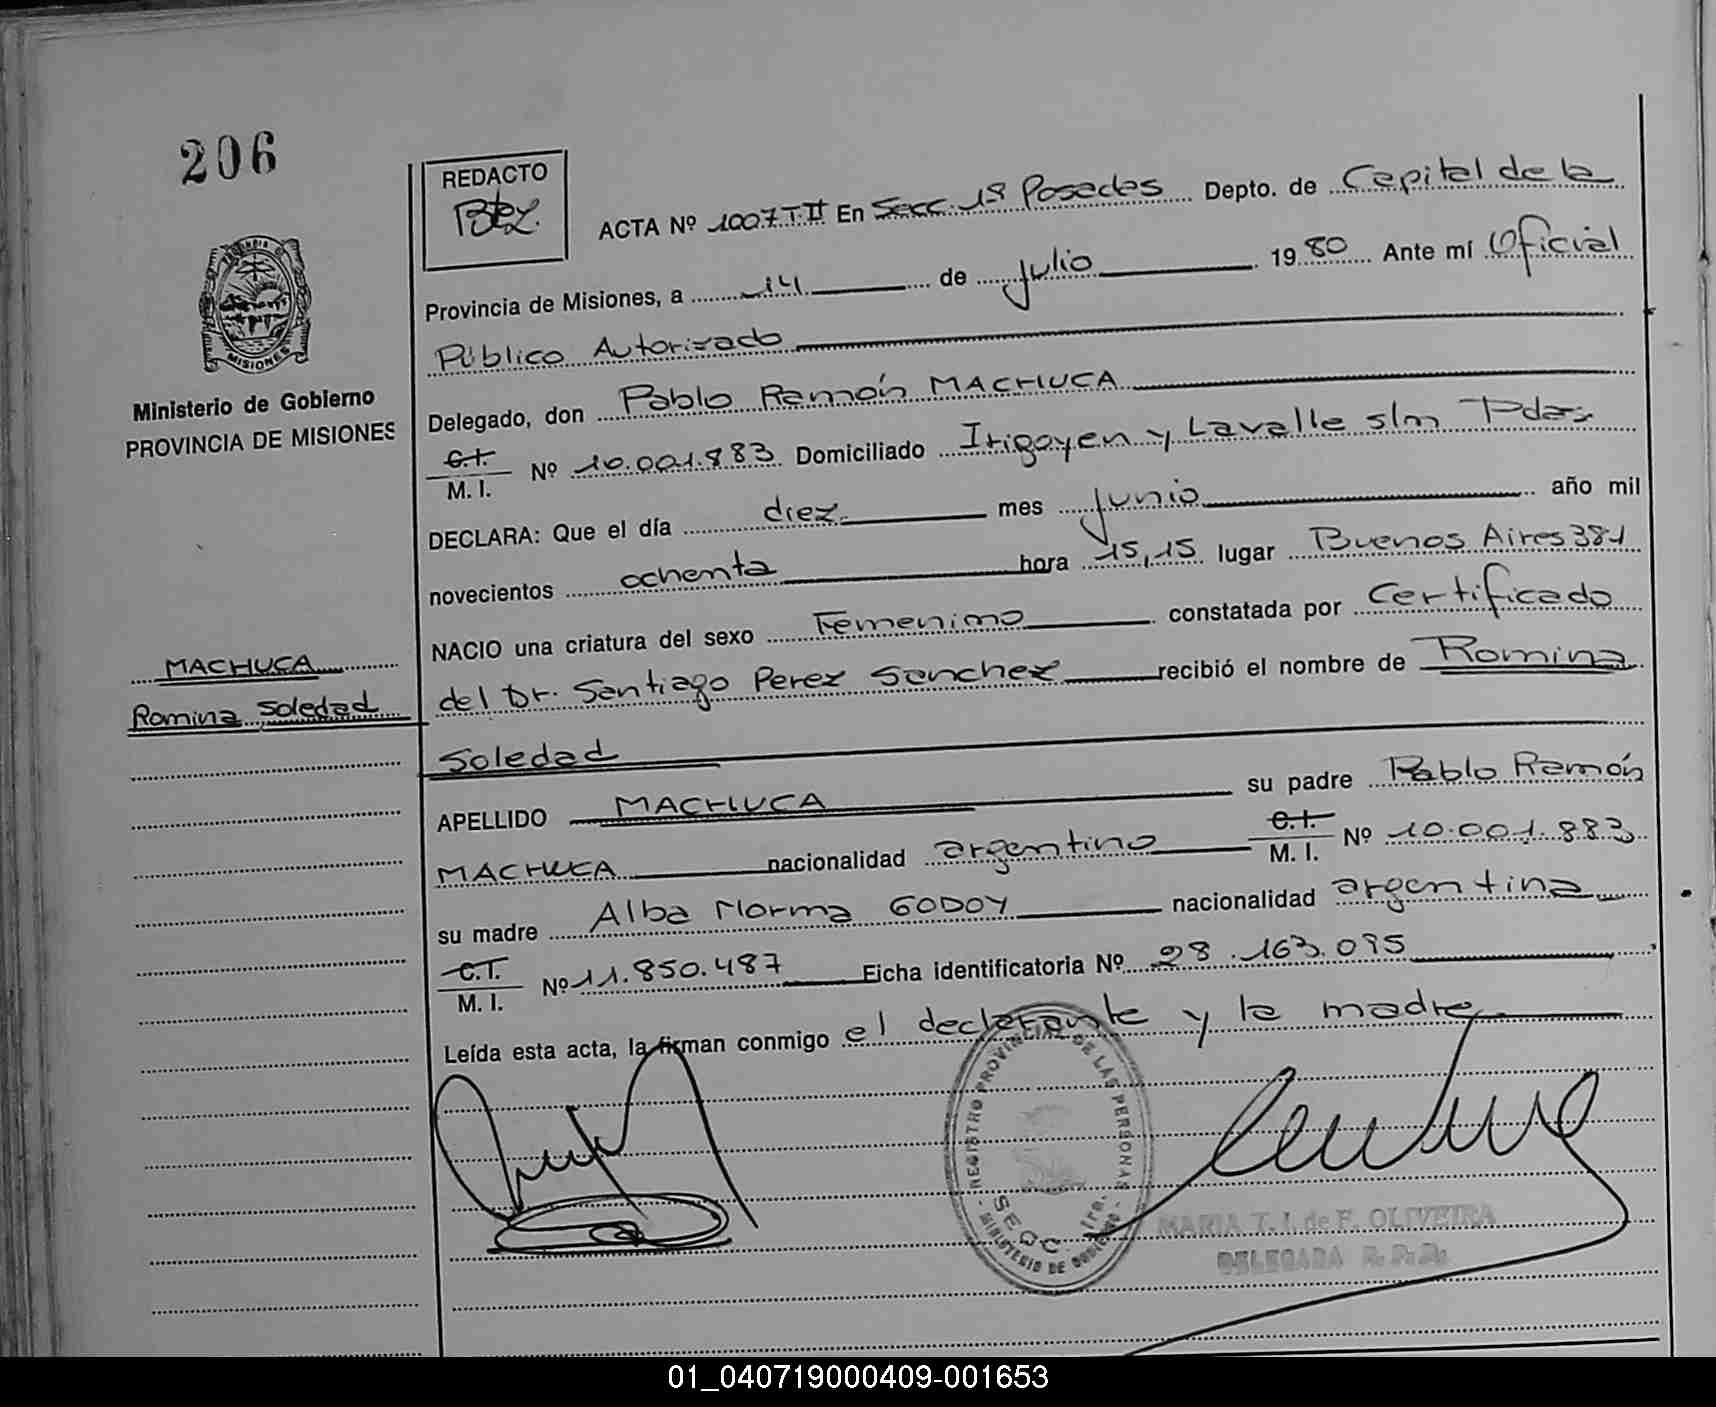 206
REDACTO
Btez.
ACTA Nº 1007 T II En Secc. 1ª Posadas Depto. de Capital de la
Provincia de Misiones, a 14 de Julio 1980 Ante mí Oficial
Público Autorizado
Delegado, don Pablo Ramón MACHUCA
C.I.
M. I. Nº 10.001.883 Domiciliado Irigoyen y Lavalle s/n Pdas
DECLARA: Que el día diez mes Junio año mil
novecientos ochenta hora 15,15 lugar Buenos Aires 381
NACIO una criatura del sexo Femenino constatada por Certificado
del Dr. Santiago Perez Sanchez recibió el nombre de Romina
Soledad
APELLIDO MACHUCA su padre Pablo Ramón
MACHUCA nacionalidad argentino C.I.
M. I. Nº 10.001.883
su madre Alba Norma GODOY nacionalidad argentina
C.I.
M. I. Nº 11.850.487 Ficha identificatoria Nº 28.163.095
Leída esta acta, la firman conmigo el declarante y la madre
MISIONES
Ministerio de Gobierno
PROVINCIA DE MISIONES
MACHUCA
Romina Soledad
REGISTRO PROVINCIAL DE LAS PERSONAS
SECC. 1ra.
MINISTERIO DE GOBIERNO
MARIA T. I. de F. OLIVEIRA
DELEGADA R. P. P.
01_040719000409-001653